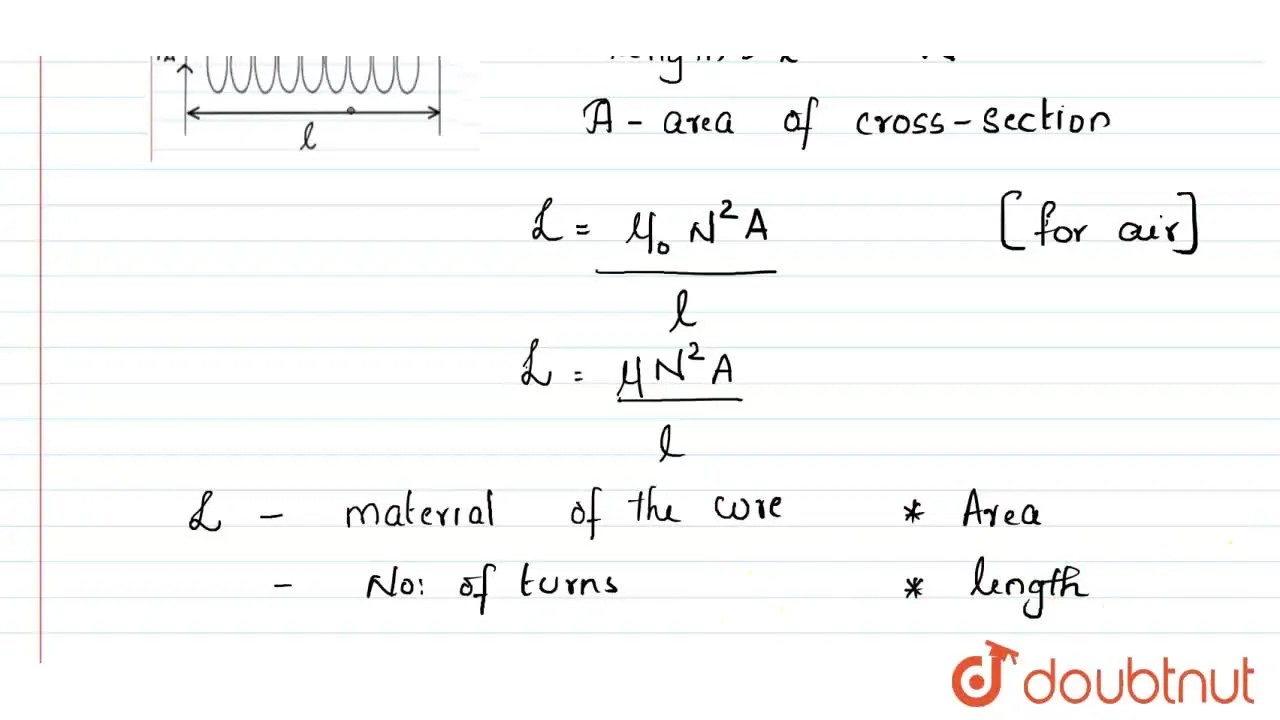 l
A - area of cross-section
L = μ₀ N² A [for air]
l
L = μ N² A
l
L - material of the core * Area
- No: of turns * length
doubtnut